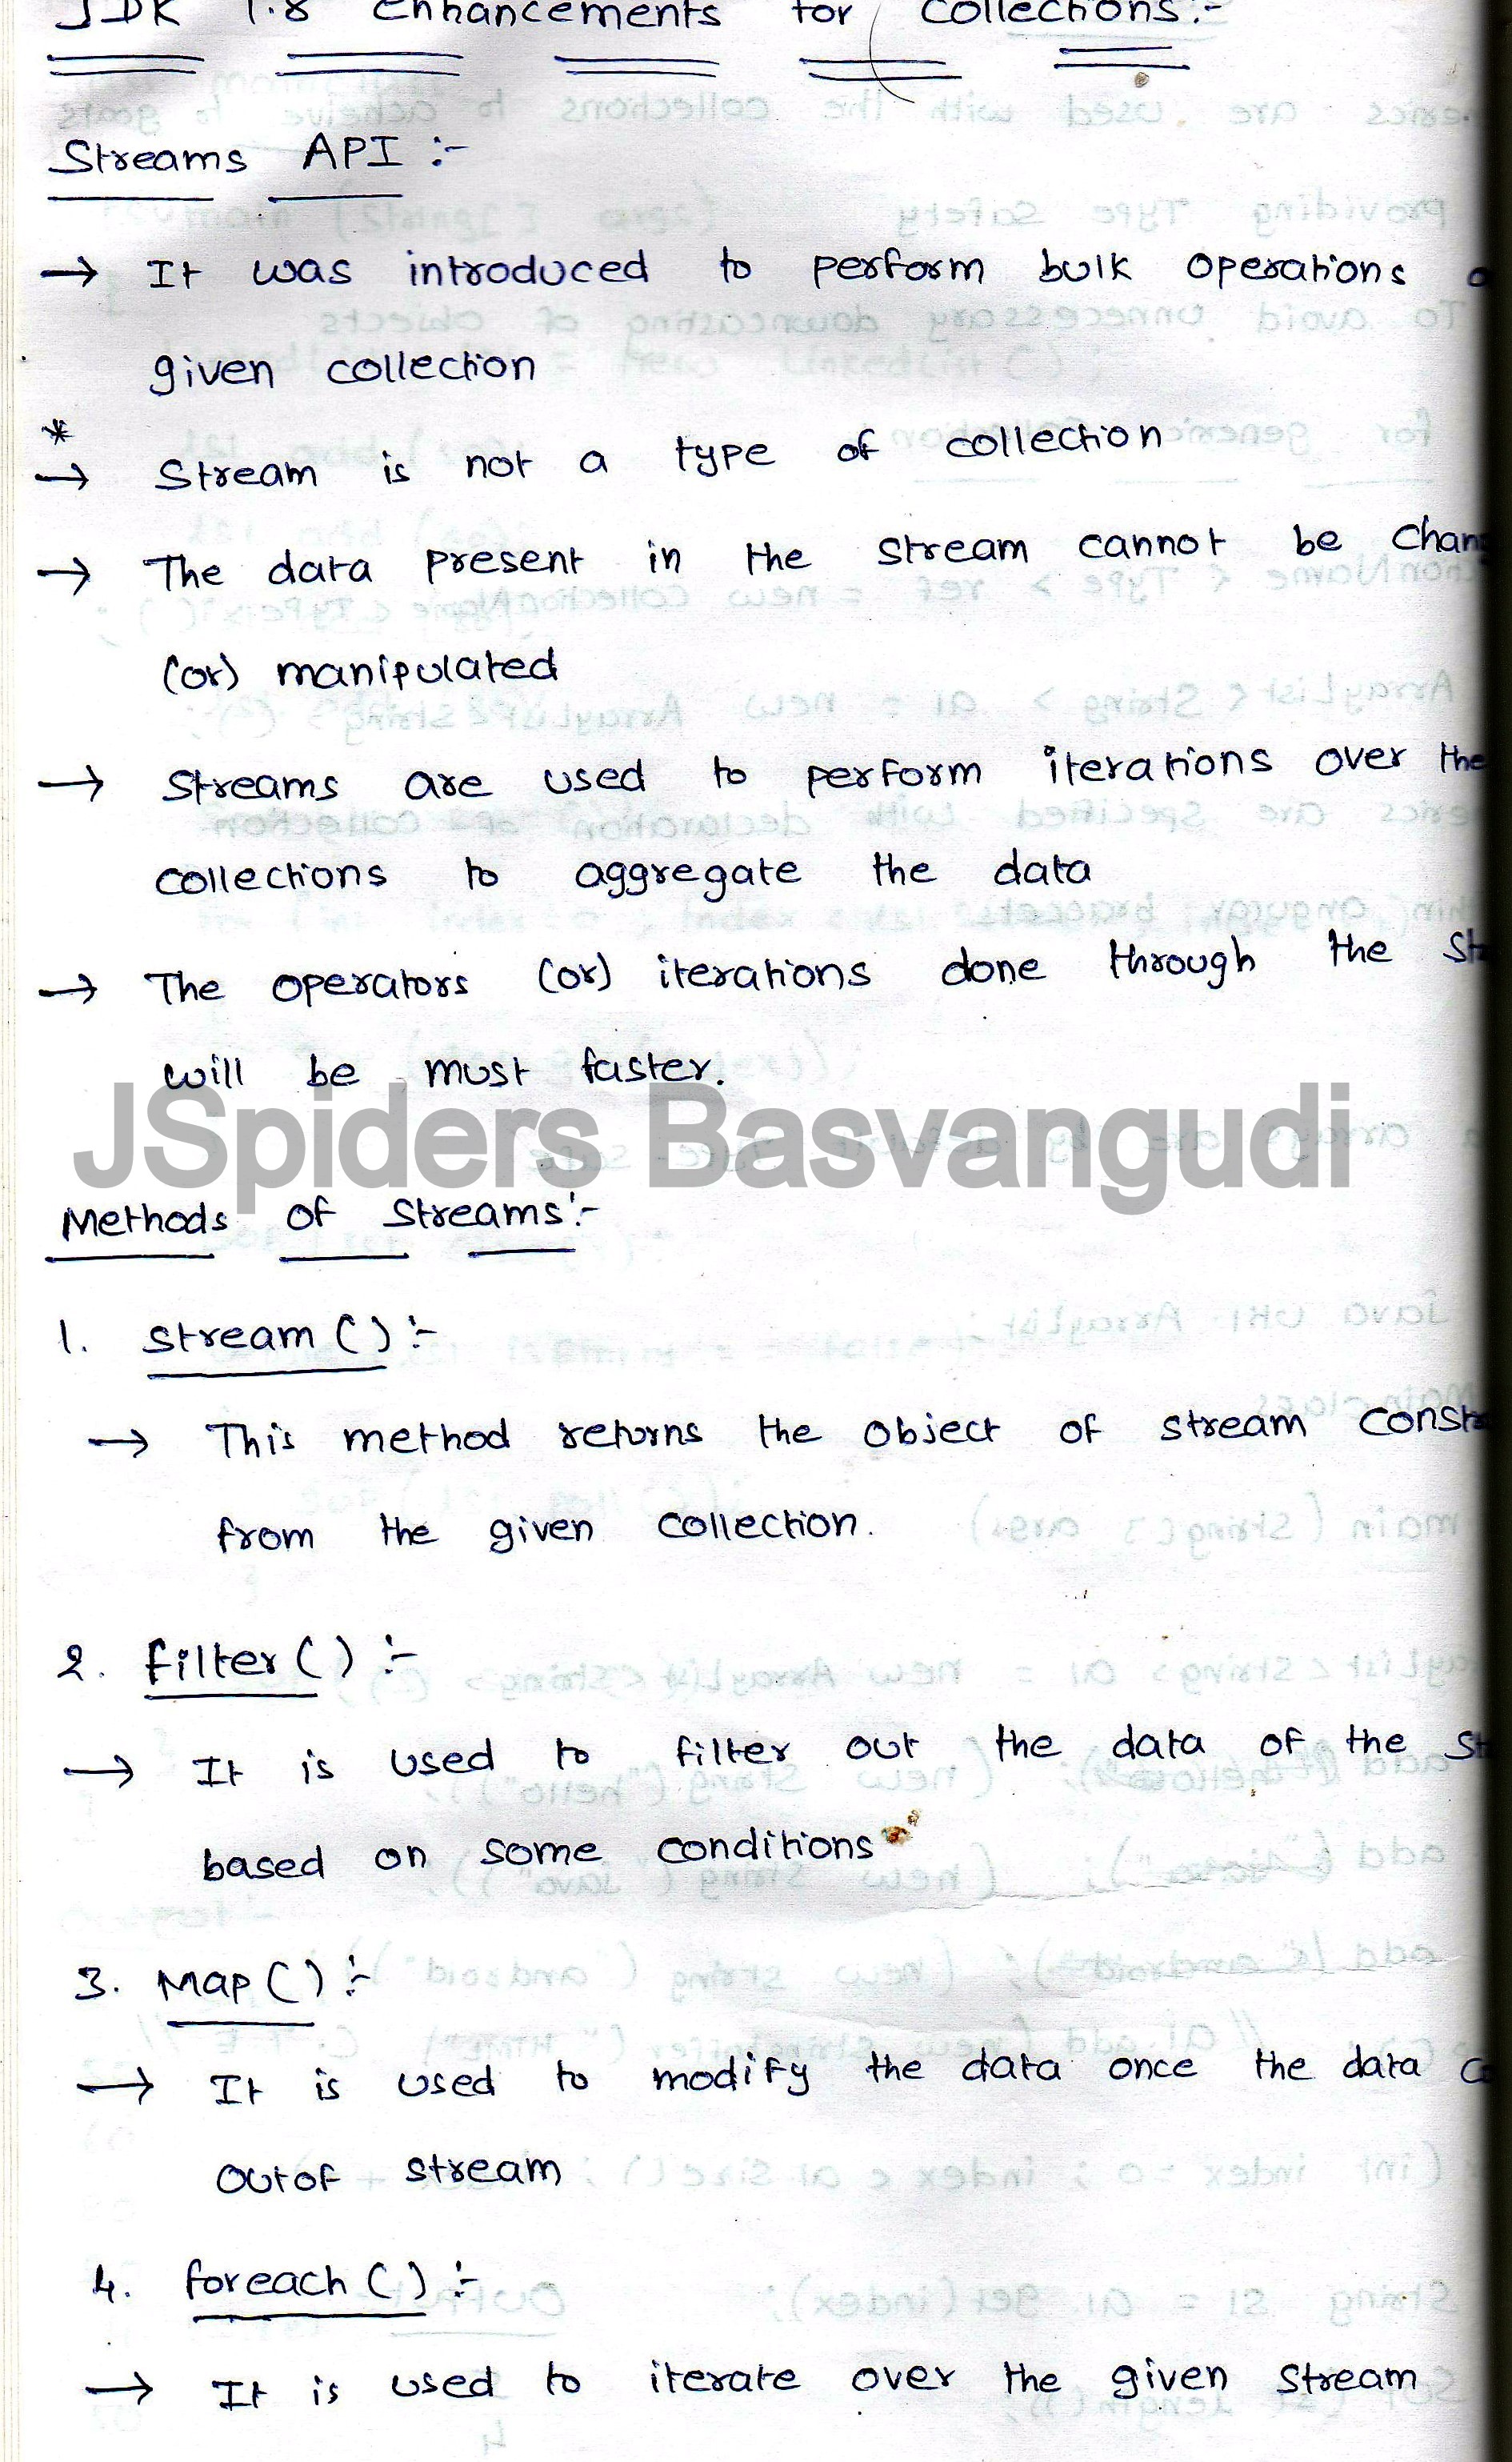 JDK 1.8 Enhancements for Collections:-
Streams API :-
→ It was introduced to perform bulk operations
given collection
*
→ Stream is not a type of collection
→ The data present in the stream cannot be Chan
(or) manipulated
→ Streams are used to perform iterations over the
collections to aggregate the data
→ The operators (or) iterations done through the St
will be must faster.
JSpiders Basvangudi
Methods of Streams:-
1. stream():-
→ This method returns the object of stream Constr
from the given collection.
2. filter():-
→ It is used to filter out the data of the St
based on some conditions
3. Map():-
→ It is used to modify the data once the data
outof stream
4. foreach():-
→ It is used to iterate over the given stream